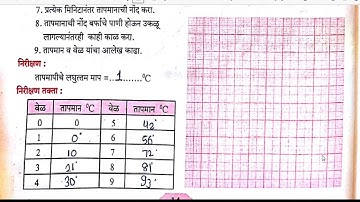 7. प्रत्येक मिनिटानंतर तापमानाची नोंद करा.
8. तापमानाची नोंद बर्फाचे पाणी होऊन उकळू
लागल्यानंतरही काही काळ करा.
9. तापमान व वेळ यांचा आलेख काढा.
निरीक्षण :
तापमापीचे लघुत्तम माप =..1........°C
निरीक्षण तक्ता :
वेळ तापमान °C वेळ तापमान °C
0 0 5 42°
1 0° 6 56°
2 10 7 72°
3 21° 8 81°
4 30° 9 93°